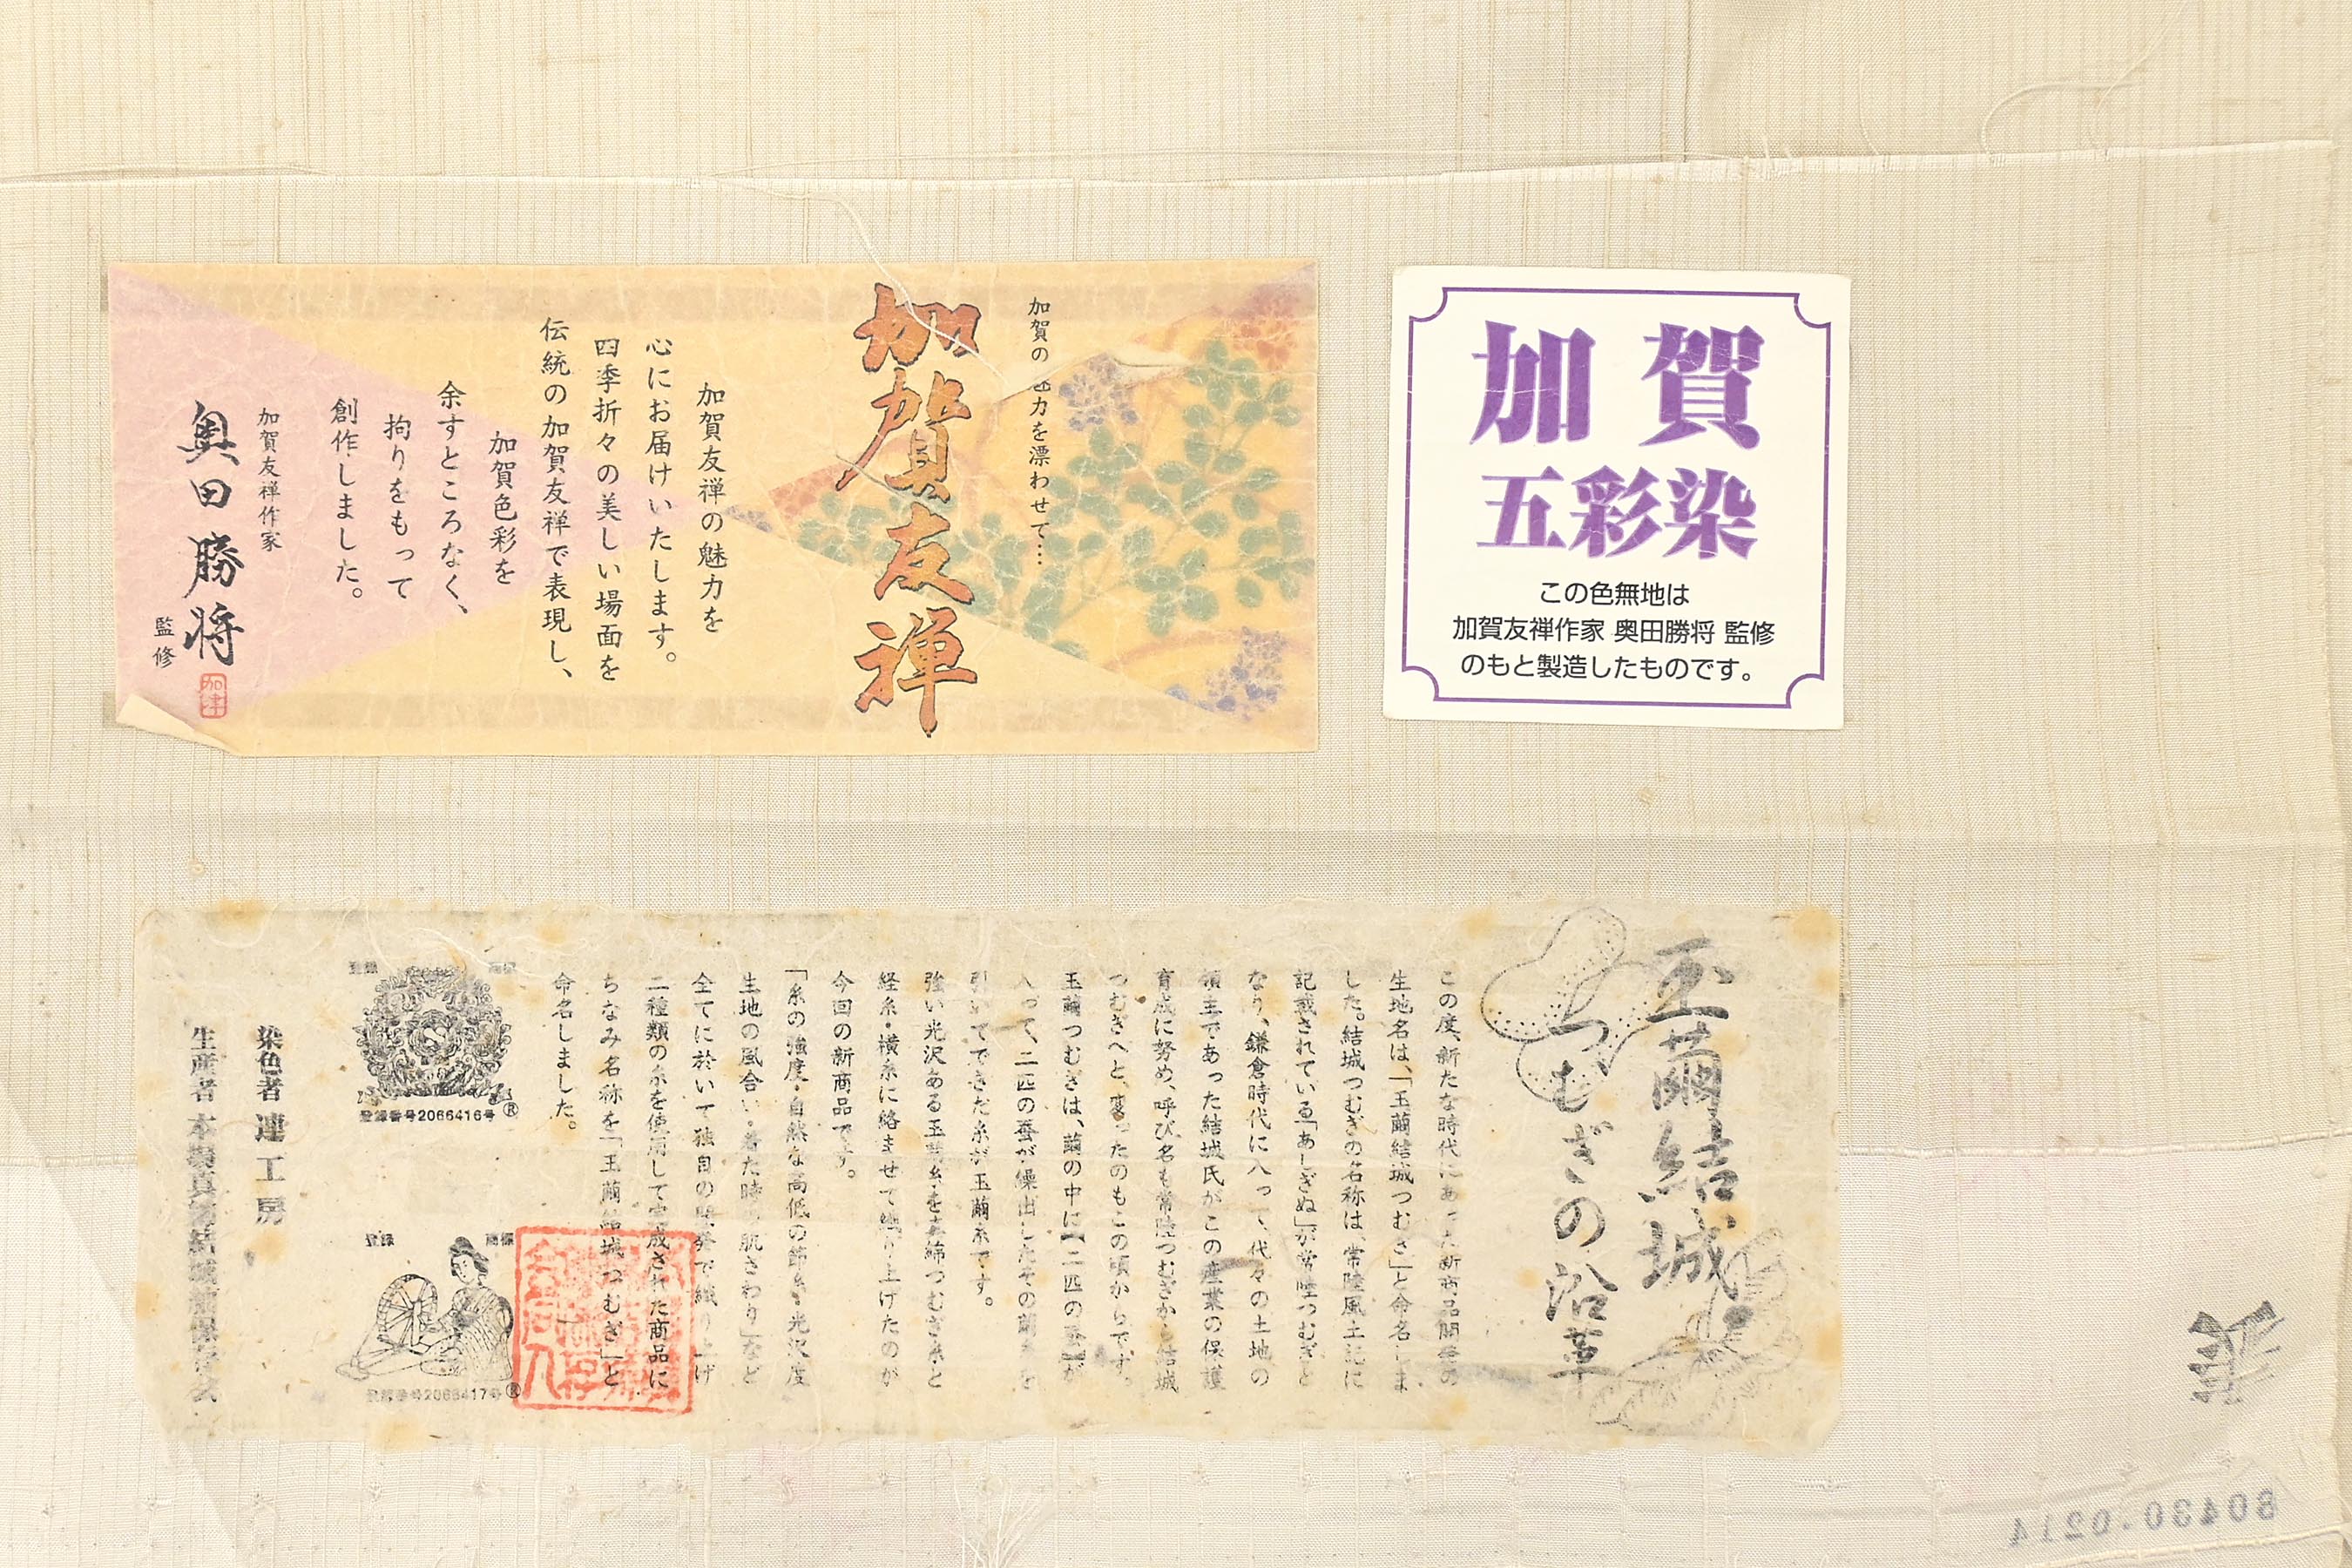 加賀の魅力を漂わせて…
加賀友禅
加賀友禅の魅力を
心にお届けいたします。
四季折々の美しい場面を
伝統の加賀友禅で表現し、
加賀色彩を
余すところなく、
拘りをもって
創作しました。
加賀友禅作家
奥田勝将
監修
加賀
五彩染
この色無地は
加賀友禅作家 奥田勝将 監修
のもと製造したものです。
玉繭結城
つむぎの沿革
この度、新たな時代にあった新商品開発の
生地名は、「玉繭結城つむぎ」と命名しま
した。結城つむぎの名称は、常陸風土記に
記載されている「あしぎぬ」が常陸つむぎと
なり、鎌倉時代に入って、代々の土地の
領主であった結城氏がこの産業の保護
育成に努め、呼び名も常陸つむぎから結城
つむぎへと、変ったのもこの頃からです。
玉繭つむぎは、繭の中に【二匹の蚕】が
入って、二匹の蚕が繰出したその繭糸を
引いてできた糸が玉繭糸です。
強い光沢ある玉繭糸を真綿つむぎ糸と
経糸・横糸に絡ませて織り上げたのが
今回の新商品です。
「糸の強度・自然な高低の節糸・光沢度
生地の風合い・着た時の肌さわり」など
全てに於いて独自の監発で織り上げ
二種類の糸を使用して完成された商品に
ちなみ名称を「玉繭結城つむぎ」と
命名しました。
登録 商標
登録番号2066416号 ®
登録 商標
登録番号2066417号 ®
染色者 連工房
生産者 本場真綿結城紬保存会
80430.0214